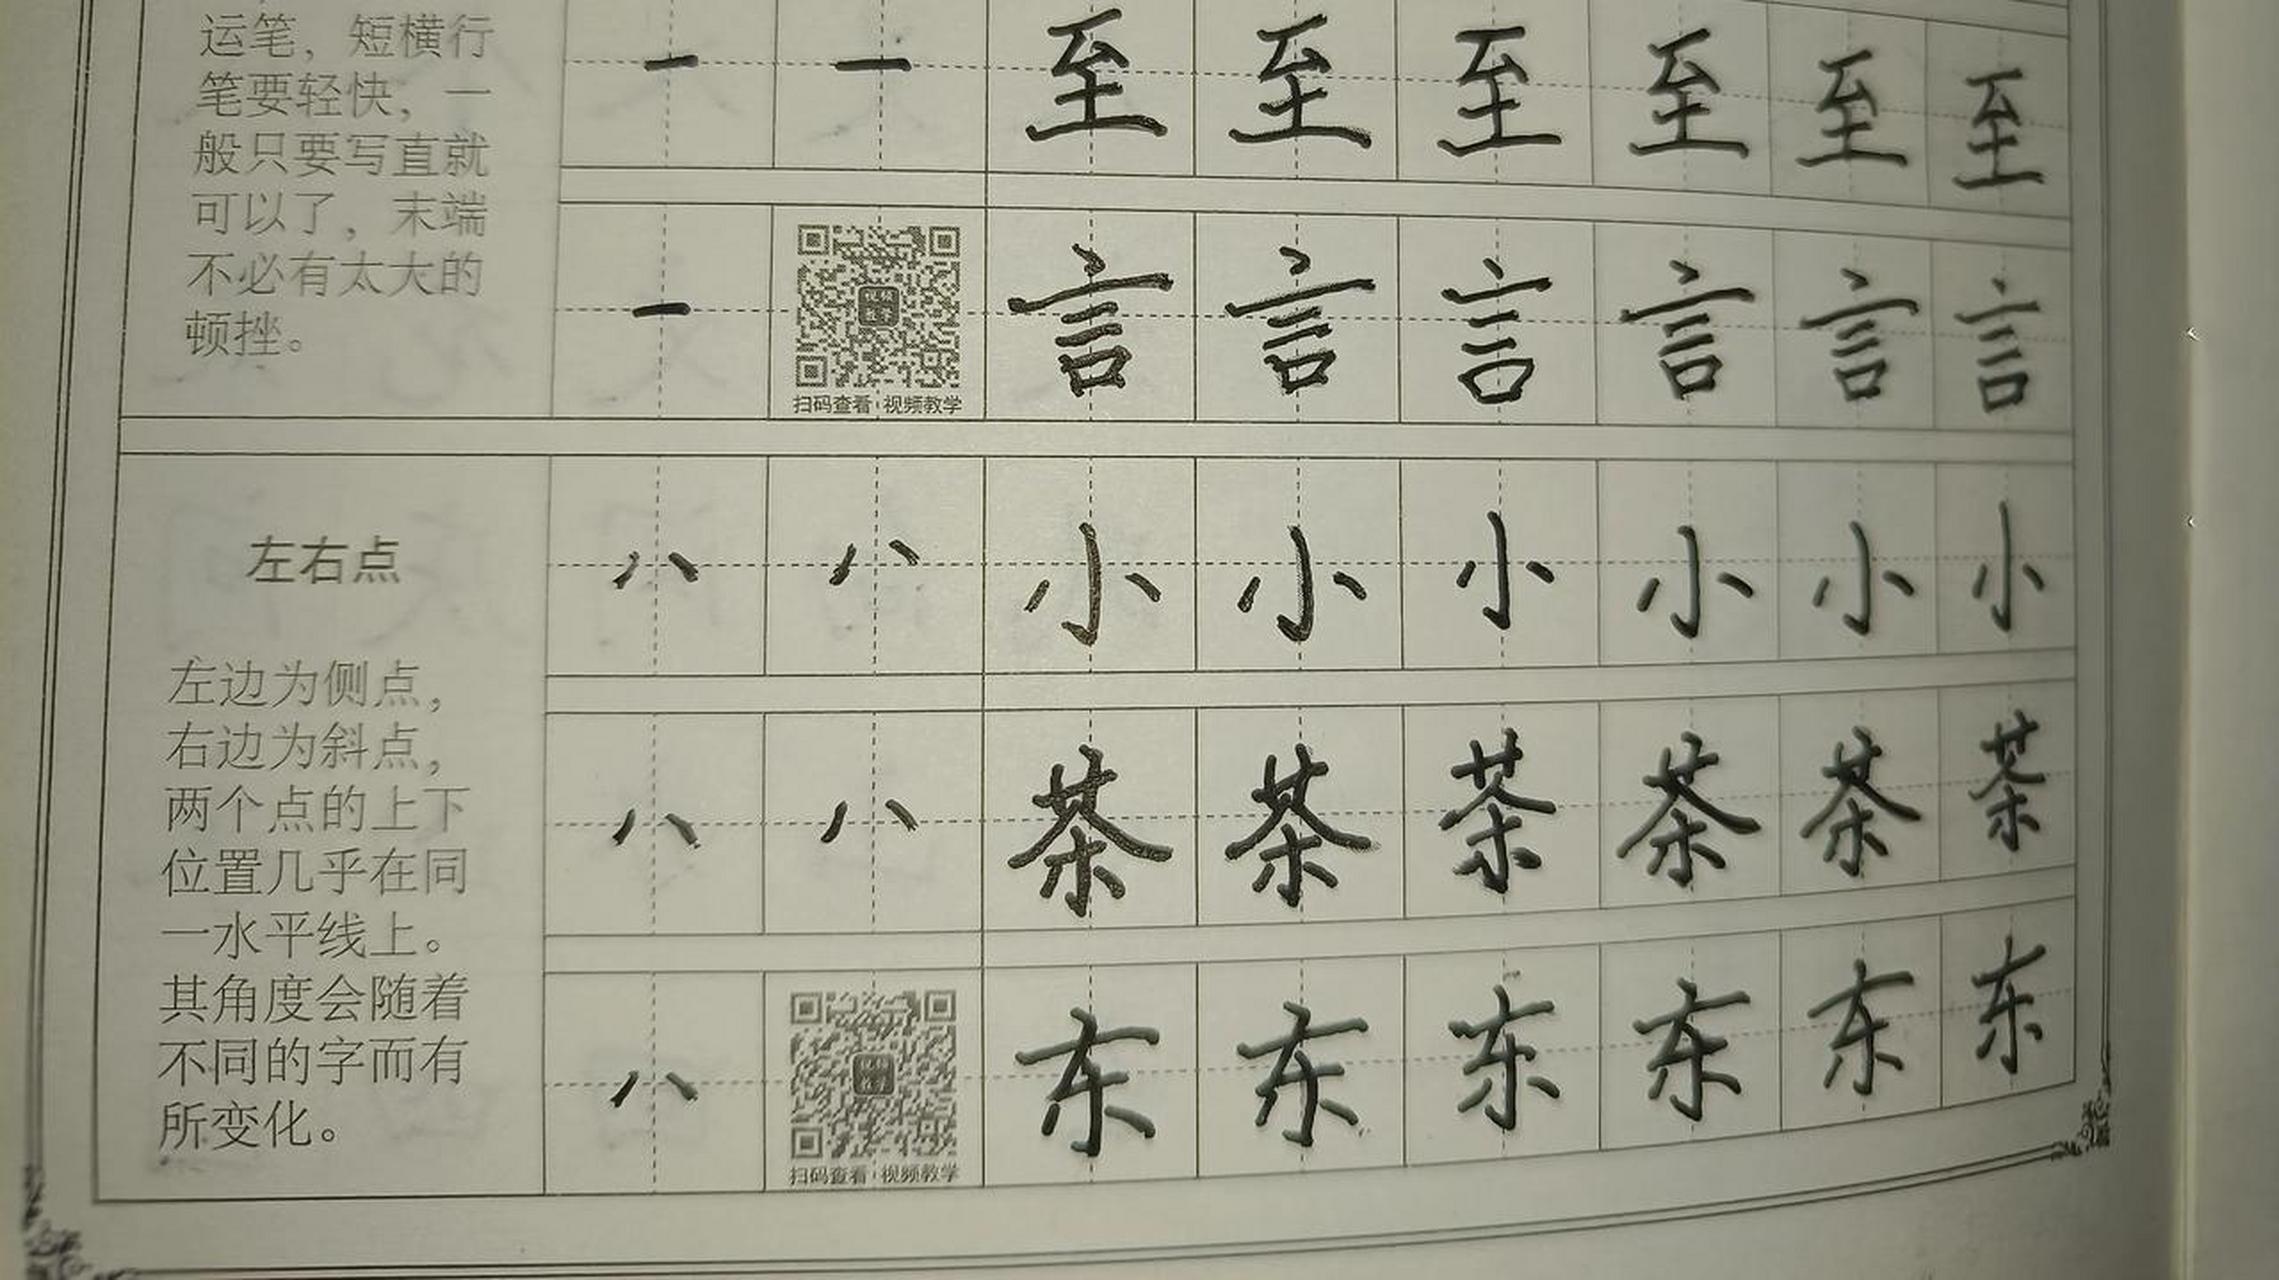 运笔，短横行
笔要轻快，一
般只要写直就
可以了，末端
不必有太大的
顿挫。
一 一 至 至 至 至 至 至
一 言 言 言 言 言 言
扫码查看 视频教学
左右点
左边为侧点，
右边为斜点，
两个点的上下
位置几乎在同
一水平线上。
其角度会随着
不同的字而有
所变化。
小 小 小 小 小 小
茶 茶 茶 茶 茶 茶
东 东 东 东 东 东
扫码查看 视频教学